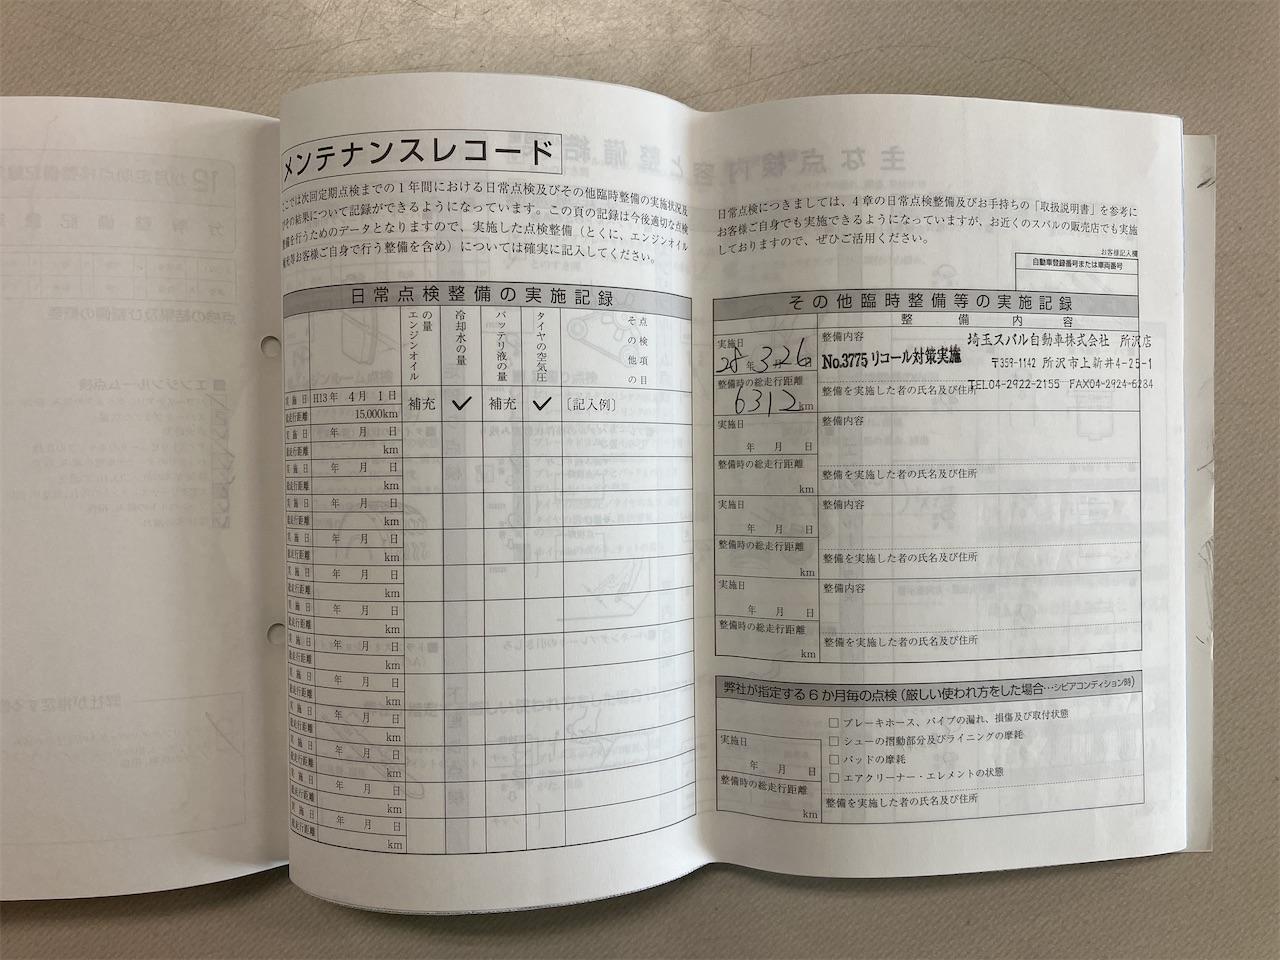 メンテナンスレコード
ここでは次回定期点検までの1年間における日常点検及びその他臨時整備の実施状況及
びその結果について記録ができるようになっています。この頁の記録は今後適切な点検
整備を行うためのデータとなりますので、実施した点検整備（とくに、エンジンオイル
補充等お客様ご自身で行う整備を含め）については確実に記入してください。
日常点検整備の実施記録
エンジンオイルの量
冷却水の量
バッテリ液の量
タイヤの空気圧
その他の点検項目
実施日 H13年 4月 1日 補充 ✓ 補充 ✓ 〔記入例〕
総走行距離 15,000km
実施日 年 月 日
総走行距離 km
実施日 年 月 日
総走行距離 km
実施日 年 月 日
総走行距離 km
実施日 年 月 日
総走行距離 km
実施日 年 月 日
総走行距離 km
実施日 年 月 日
総走行距離 km
実施日 年 月 日
総走行距離 km
実施日 年 月 日
総走行距離 km
実施日 年 月 日
総走行距離 km
実施日 年 月 日
総走行距離 km
実施日 年 月 日
総走行距離 km
実施日 年 月 日
総走行距離 km
日常点検につきましては、4章の日常点検整備及びお手持ちの「取扱説明書」を参考に
お客様ご自身でも実施できるようになっていますが、お近くのスバルの販売店でも実施
しておりますので、ぜひご活用ください。
お客様記入欄
自動車登録番号または車両番号
その他臨時整備等の実施記録
整備内容
実施日
28年3月26日
整備時の総走行距離
6312km
整備内容
No.3775 リコール対策実施
埼玉スバル自動車株式会社 所沢店
〒359-1142 所沢市上新井4-25-1
TEL04-2922-2155 FAX04-2924-6234
整備を実施した者の氏名及び住所
実施日
年 月 日
整備時の総走行距離
km
整備内容
整備を実施した者の氏名及び住所
実施日
年 月 日
整備時の総走行距離
km
整備内容
整備を実施した者の氏名及び住所
実施日
年 月 日
整備時の総走行距離
km
整備内容
整備を実施した者の氏名及び住所
弊社が指定する6か月毎の点検（厳しい使われ方をした場合…シビアコンディション時）
□ ブレーキホース、パイプの漏れ、損傷及び取付状態
□ シューの摺動部分及びライニングの摩耗
□ パッドの摩耗
□ エアクリーナー・エレメントの状態
実施日
年 月 日
整備時の総走行距離
km
整備を実施した者の氏名及び住所